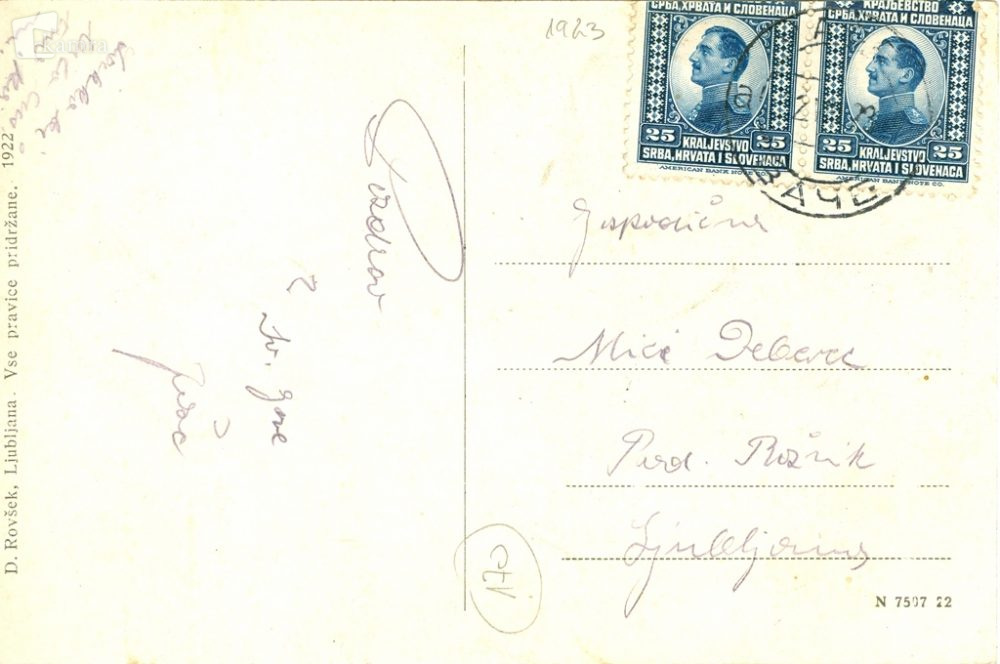 1923
КРАЉЕВСТВО
СРБА, ХРВАТА И СЛОВЕНАЦА
СРБА, ХРВАТА И СЛОВЕНАЦА
25 25
KRALJEVSTVO
SRBA, HRVATA I SLOVENACA
AMERICAN BANK NOTE
25 25
KRALJEVSTVO
SRBA, HRVATA I SLOVENACA
AMERICAN BANK NOTE CO.
ВАЧЕ
Pozdrav
z
Sv. gore
Gospodična
Mici Deberc
Pod. Rožnik
Ljubljana
D. Rovšek, Ljubljana. Vse pravice pridržane. 1922
N 7507 22